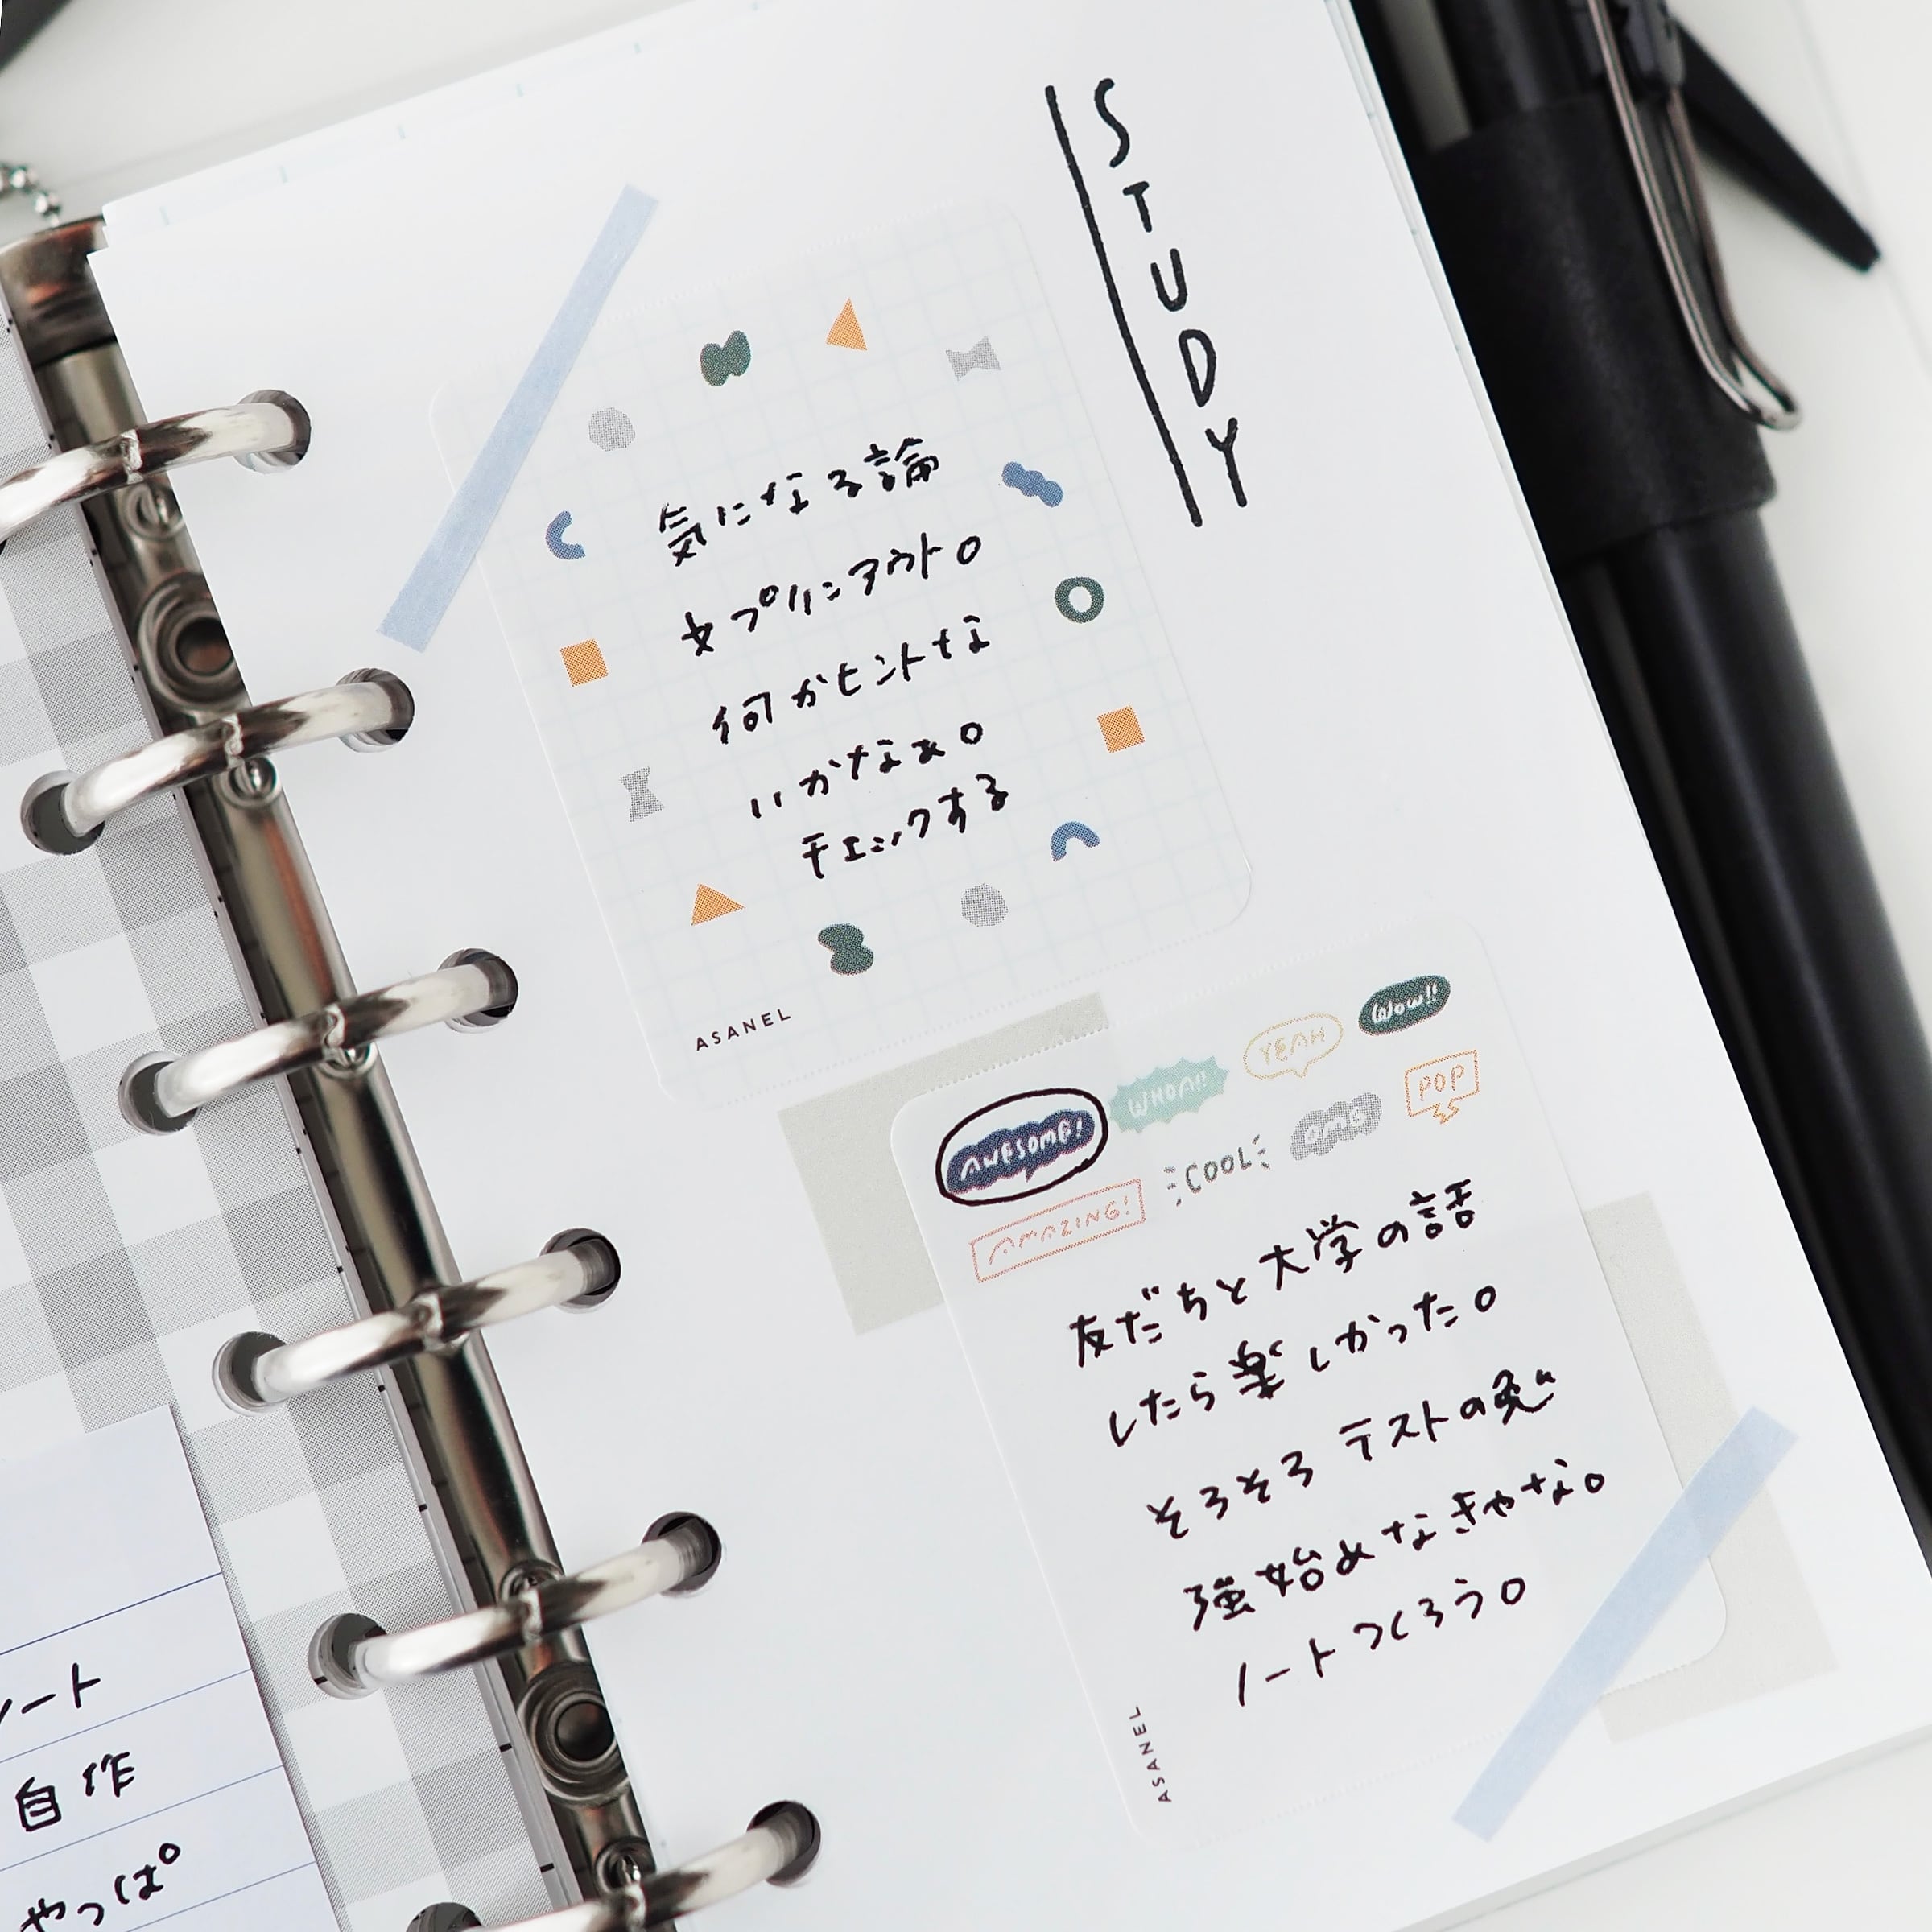 STUDY
気になる論
文プリンアウト。
何かヒントな
いかなぁ。
チェックする
ASANEL
AWESOME! WHOA!! YEAH WOW!!
AMAZING! COOL OMG POP
友だちと大学の話
したら楽しかった。
そろそろテストの勉
強始めなきゃな。
ノートつくろう。
ASANEL
ノート
自作
やっぱ